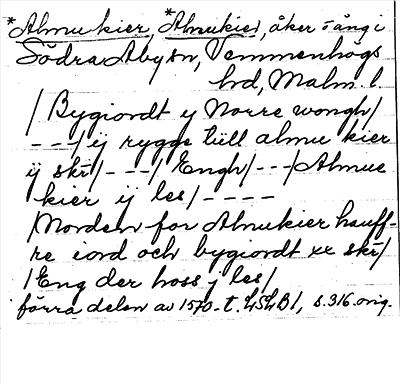 *Almu kier, *Almukier, åker o äng i
Södra Åby sn, Vemmenhögs
hd, Malm. l.
/ Bygiordt y Norre wongh /
- - - / ij rygge till almu kier
ij skr / - - - / Engh / - - - / Almue
kier ij les / - - - -
/ Norden for Almukier hauff-
re iord och bygiordt xx skr /
/ Eng der hoss j les /
förra delen av 1570-t. LSLB 1, s. 316. orig.